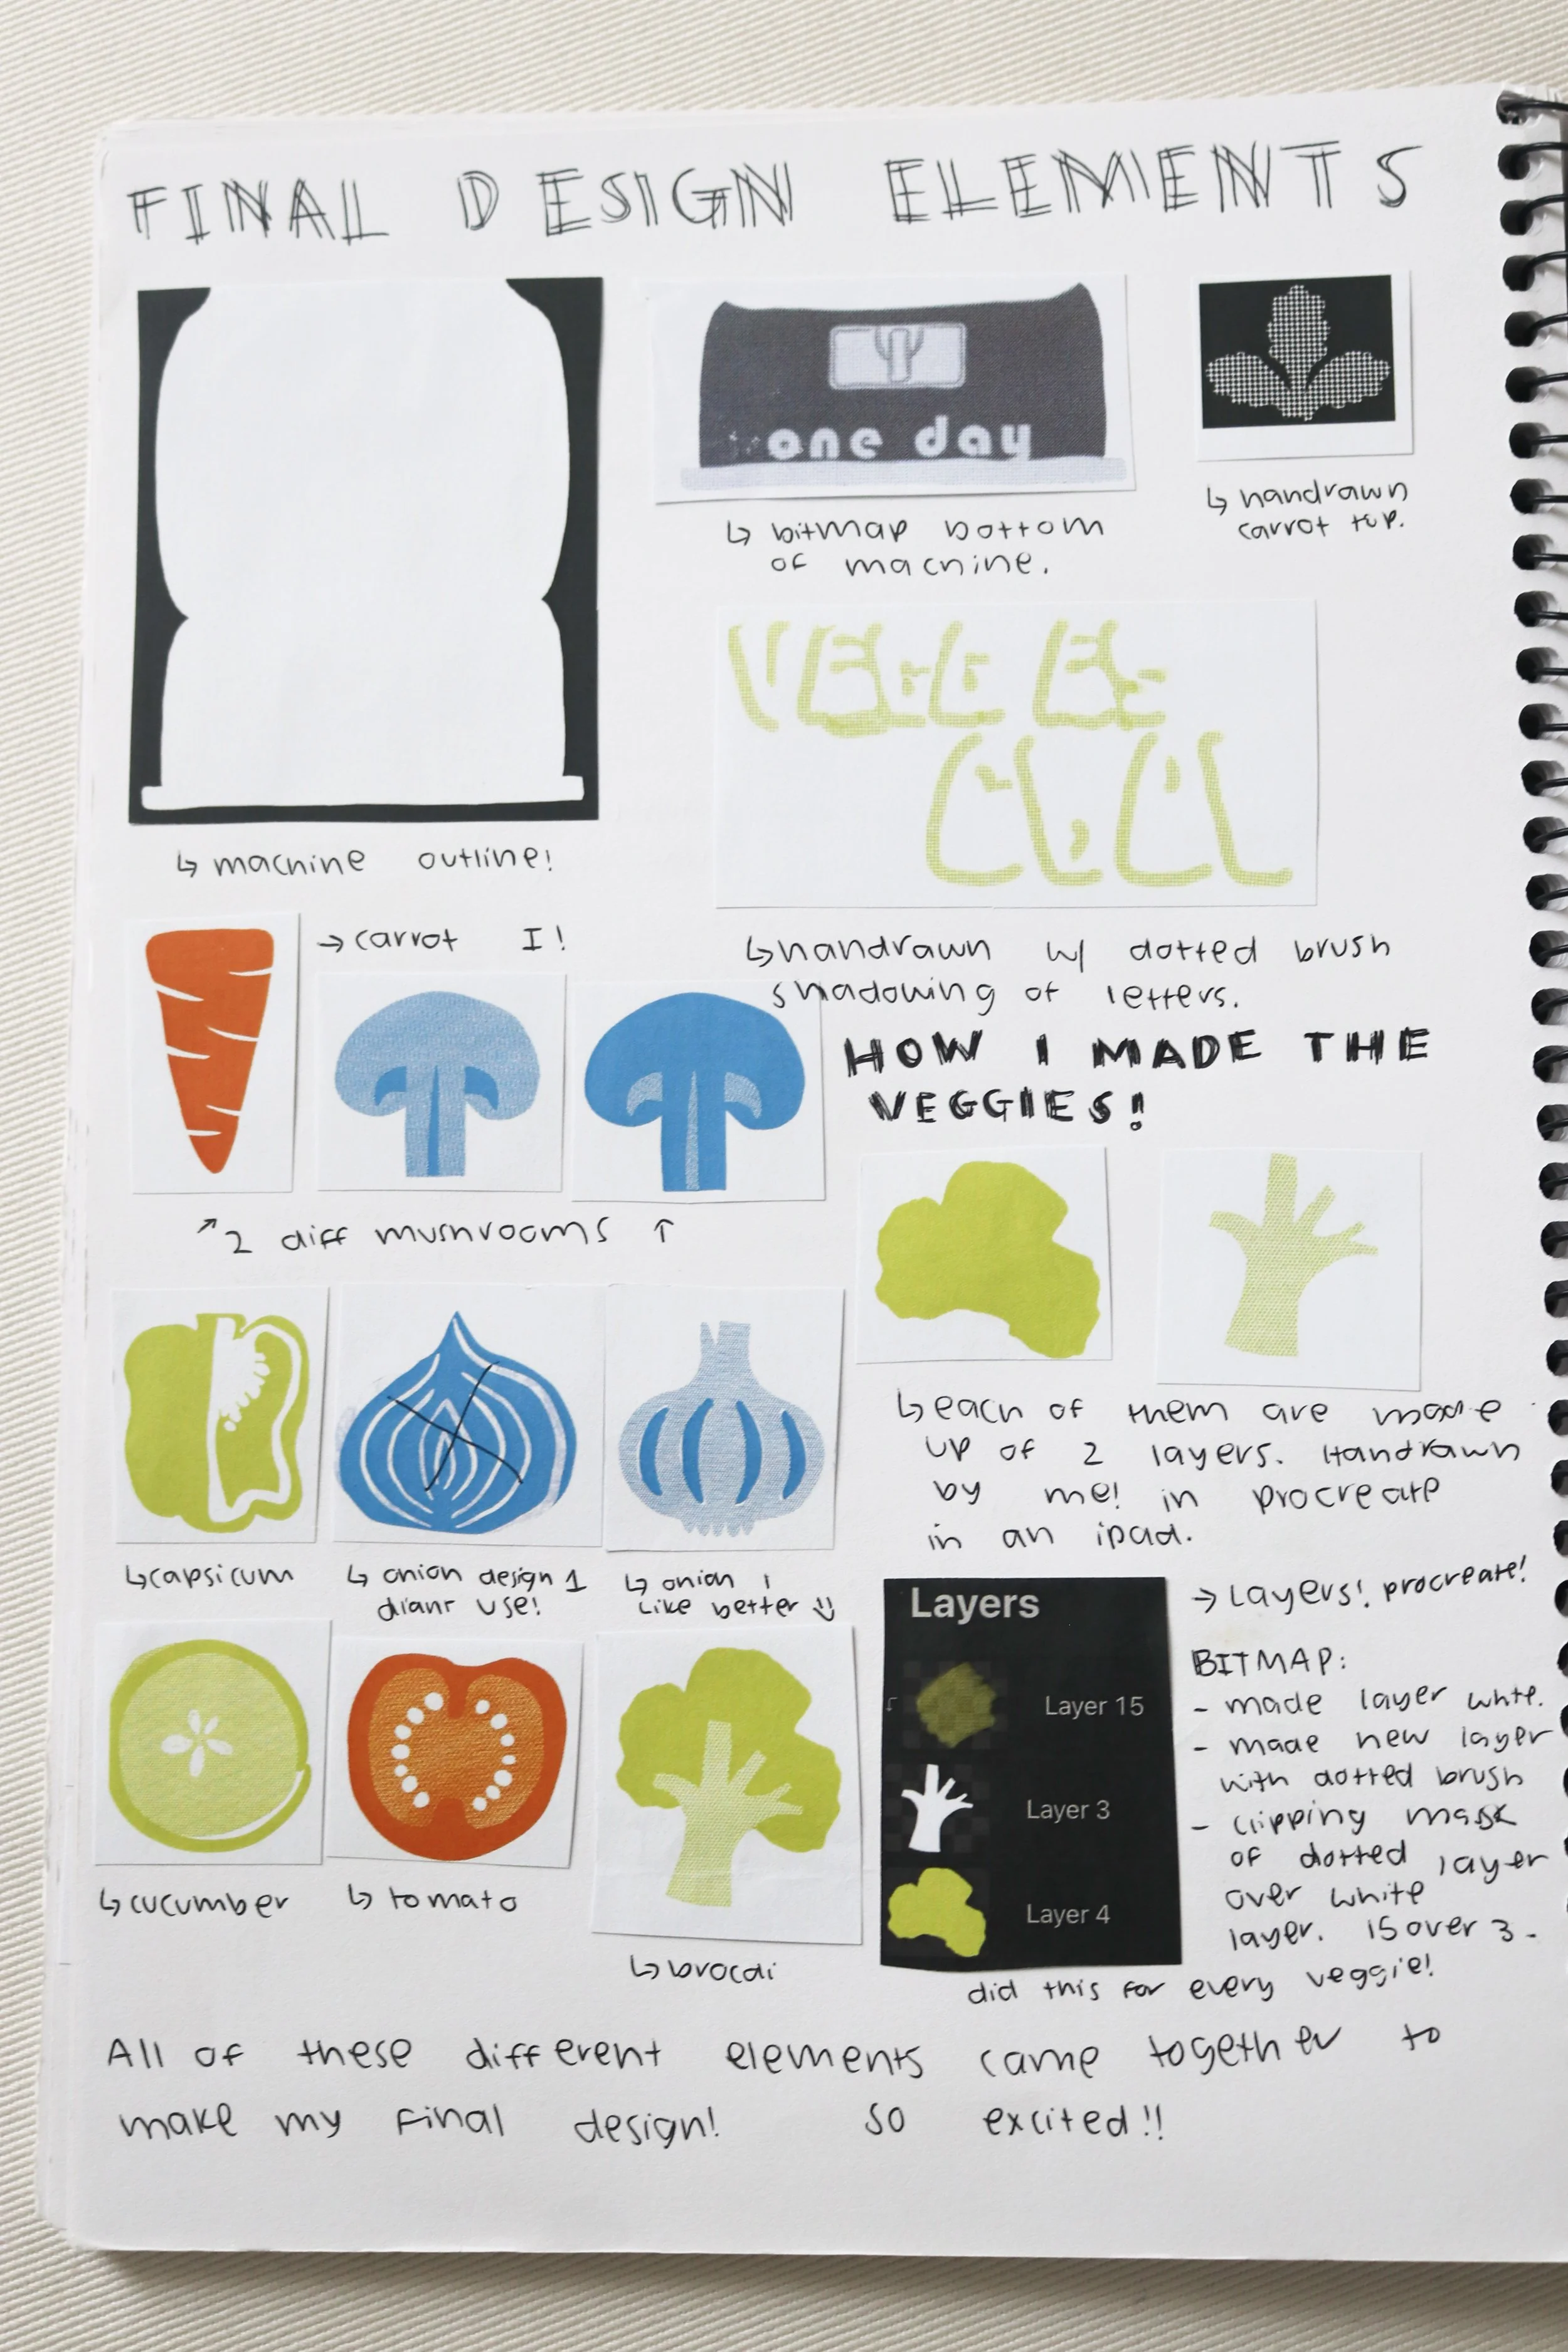 FINAL DESIGN ELEMENTS
one day
↳ bitmap bottom
of machine.
↳ handrawn
carrot top.
↳ machine outline!
VEGGIE
↳ handrawn w/ dotted brush
shadowing of letters.
→ carrot I!
↗ 2 diff mushrooms ↑
HOW I MADE THE
VEGGIES!
↳ each of them are made
up of 2 layers. Handrawn
by me! in procreate
in an ipad.
↳ capsicum
↳ onion design 1
didnt use!
↳ onion i
like better
↳ cucumber
↳ tomato
↳ brocai
Layers
Layer 15
Layer 3
Layer 4
→ Layers! procreate!
BITMAP:
- made layer white.
- made new layer
with dotted brush
- clipping mask
of dotted layer
over white
layer. 15 over 3.
did this for every veggie!
All of these different elements came together to
make my final design! so excited!!